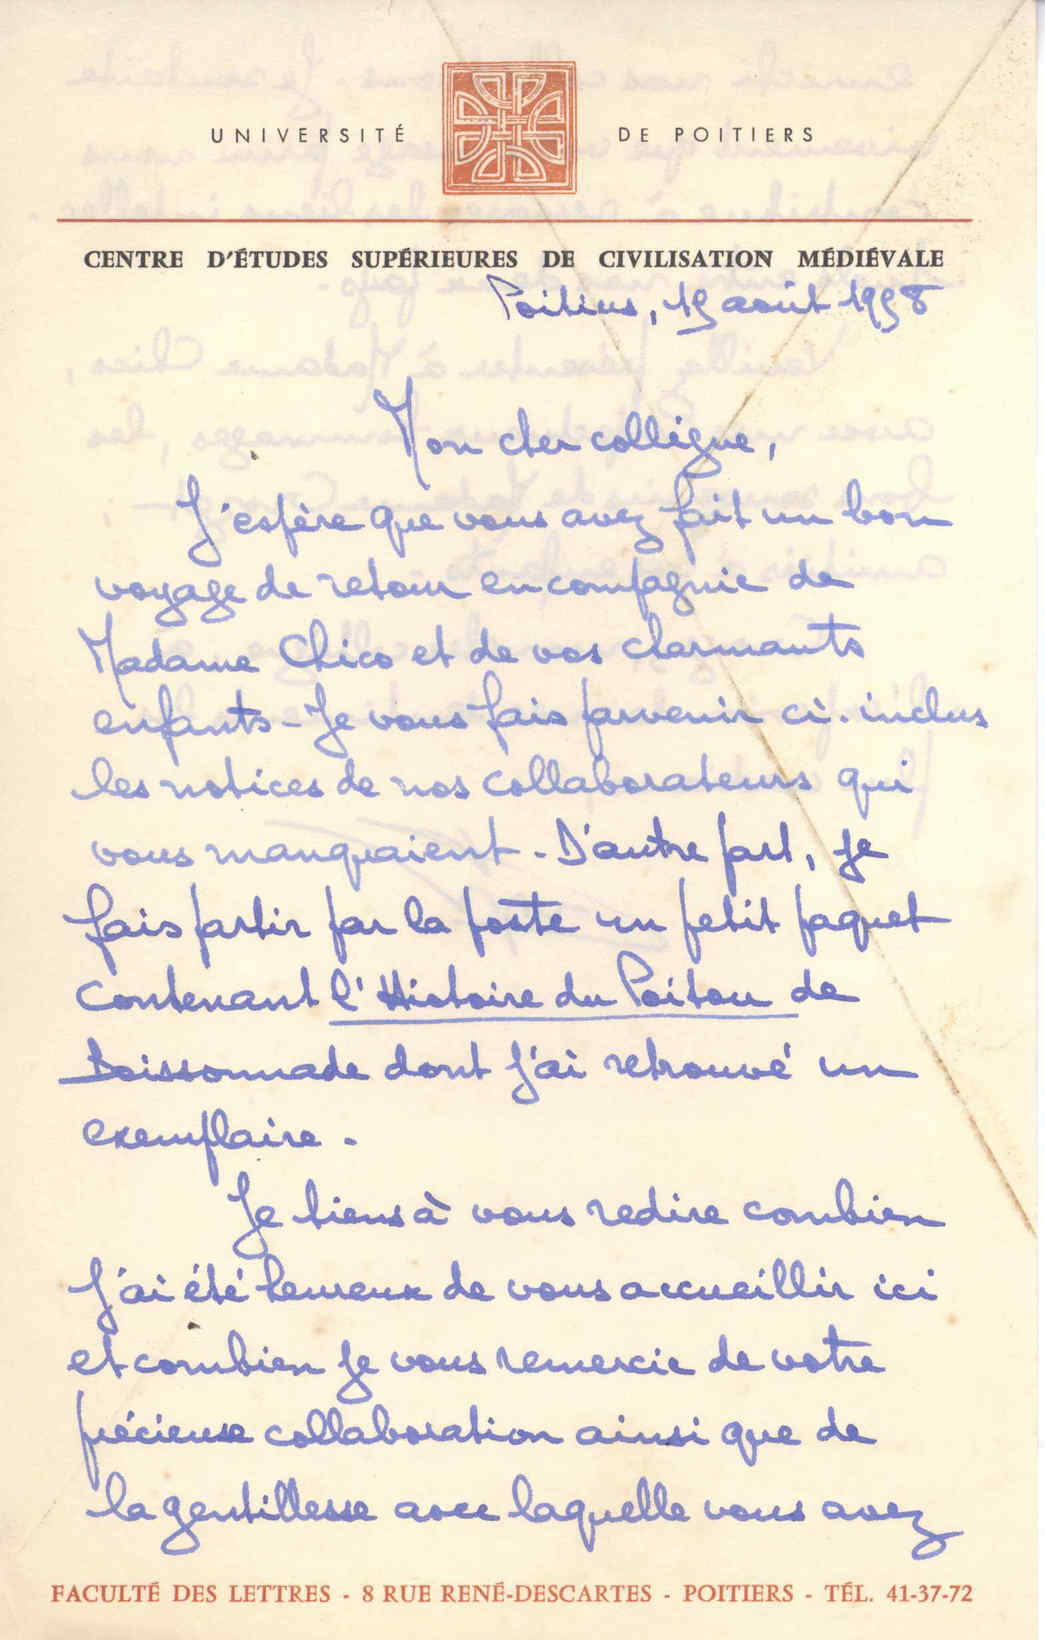 UNIVERSITÉ DE POITIERS
CENTRE D'ÉTUDES SUPÉRIEURES DE CIVILISATION MÉDIÉVALE
Poitiers, 19 août 1958
Mon cher collègue,
J'espère que vous avez fait un bon
voyage de retour en compagnie de
Madame Chico et de vos charmants
enfants - Je vous fais parvenir ci-inclus
les notices de nos collaborateurs qui
vous manquaient - D'autre part, je
fais partir par la poste un petit paquet
contenant l'Histoire du Poitou de
Boissonnade dont j'ai retrouvé un
exemplaire -
Je tiens à vous redire combien
j'ai été heureux de vous accueillir ici
et combien je vous remercie de votre
précieuse collaboration ainsi que de
la gentillesse avec laquelle vous avez
FACULTÉ DES LETTRES - 8 RUE RENÉ-DESCARTES - POITIERS - TÉL. 41-37-72